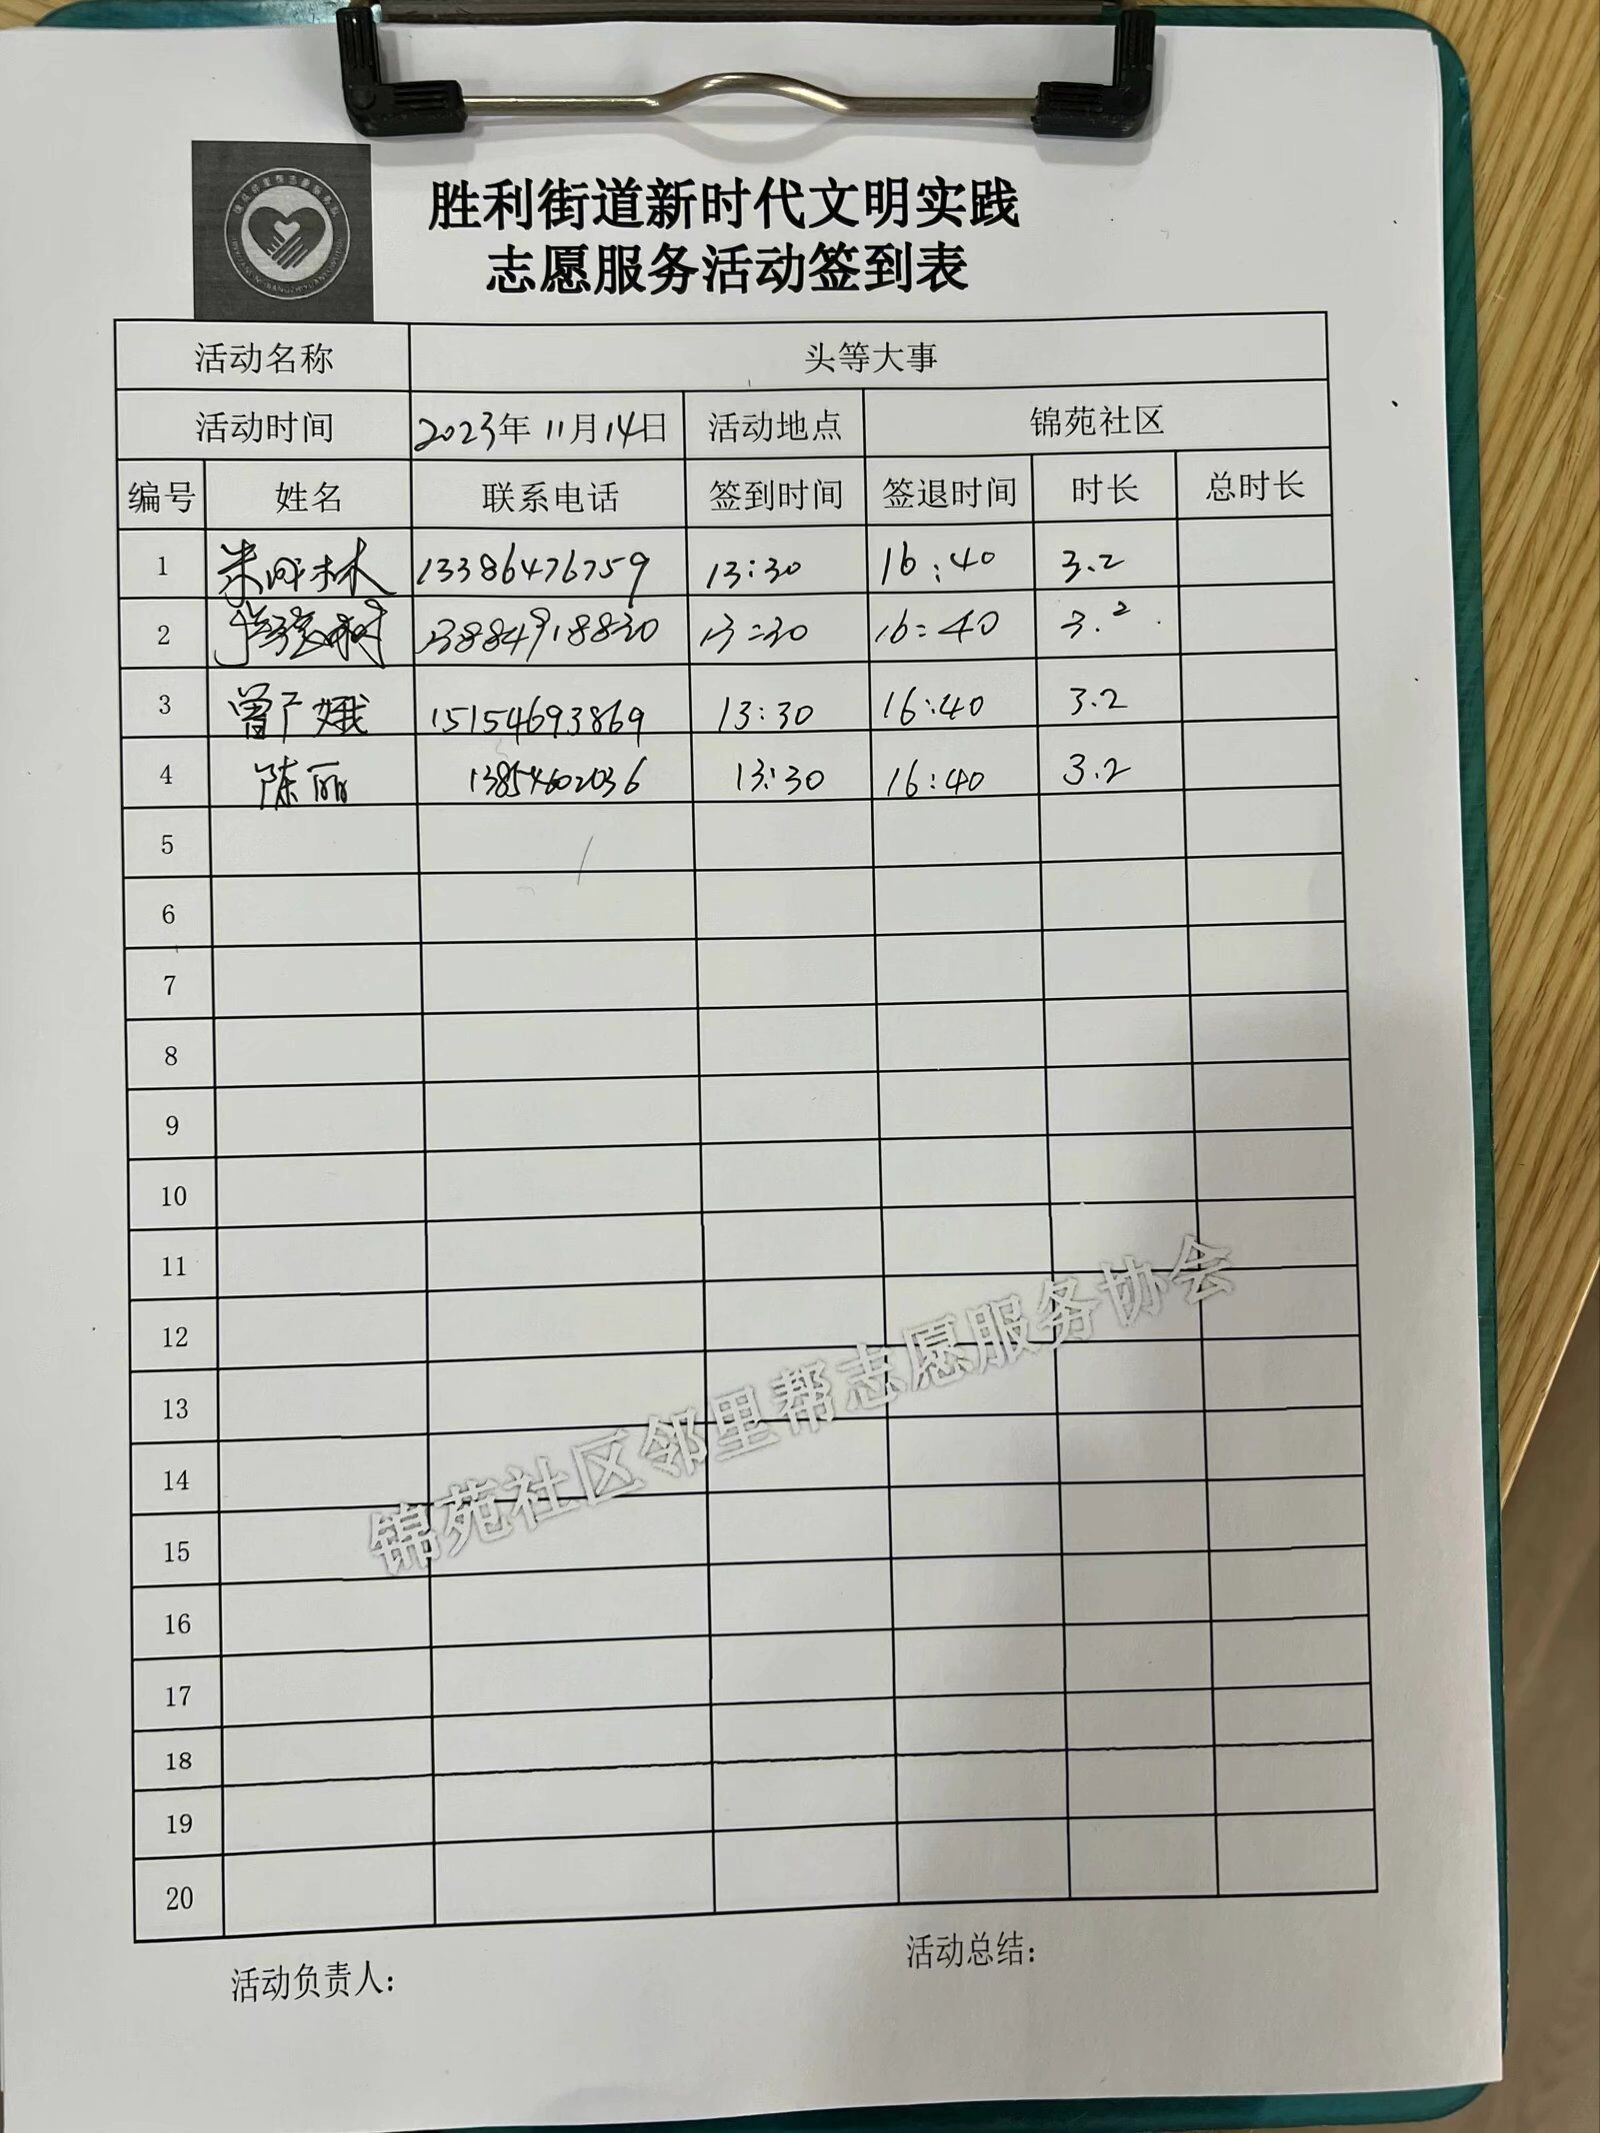 胜利街道新时代文明实践
志愿服务活动签到表
活动名称 头等大事
活动时间 2023年11月14日 活动地点 锦苑社区
编号 姓名 联系电话 签到时间 签退时间 时长 总时长
1 13386476759 13:30 16:40 3.2
2 13884918830 13:30 16:40 3.2
3 曾广娥 15154693869 13:30 16:40 3.2
4 陈丽 13854602036 13:30 16:40 3.2
5
6
7
8
9
10
11
12
13
14
15
16
17
18
19
20
锦苑社区邻里帮志愿服务协会
活动负责人:
活动总结: